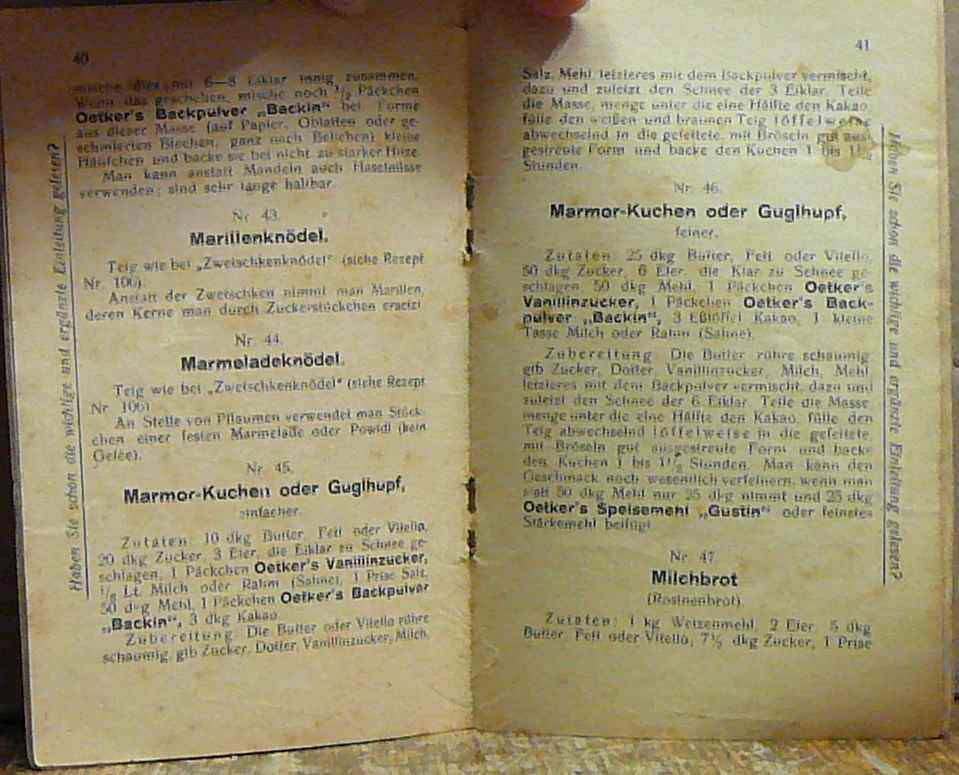 40
mische dies mit 6—8 Eiklar innig zusammen.
Wenn das geschehen, mische noch ½ Päckchen
Oetker's Backpulver „Backin“ bei. Forme
aus dieser Masse (auf Papier, Oblatten oder ge-
schmierten Blechen, ganz nach Belieben) kleine
Häufchen und backe sie bei nicht zu starker Hitze.
Man kann anstatt Mandeln auch Haselnüsse
verwenden; sind sehr lange haltbar.
Nr. 43.
Marillenknödel.
Teig wie bei „Zwetschkenknödel“ (siehe Rezept
Nr. 106).
Anstatt der Zwetschken nimmt man Marillen,
deren Kerne man durch Zuckerstückchen ersetzt.
Nr. 44.
Marmeladeknödel.
Teig wie bei „Zwetschkenknödel“ (siehe Rezept
Nr. 106).
An Stelle von Pflaumen verwendet man Stück-
chen einer festen Marmelade oder Powidl (kein
Gelee).
Nr. 45.
Marmor-Kuchen oder Guglhupf,
einfacher.
Zutaten: 10 dkg Butter, Fett oder Vitello,
20 dkg Zucker, 3 Eier, die Eiklar zu Schnee ge-
schlagen, 1 Päckchen Oetker's Vanillinzucker,
⅛ Lt. Milch oder Rahm (Sahne), 1 Prise Salz,
50 dkg Mehl, 1 Päckchen Oetker's Backpulver
„Backin“, 3 dkg Kakao.
Zubereitung: Die Butter oder Vitello rühre
schaumig, gib Zucker, Dotter, Vanillinzucker, Milch,
Haben Sie schon die wichtige und ergänzte Einleitung gelesen?
41
Salz, Mehl, letzteres mit dem Backpulver vermischt,
dazu und zuletzt den Schnee der 3 Eiklar. Teile
die Masse, menge unter die eine Hälfte den Kakao,
fülle den weißen und braunen Teig löffelweise
abwechselnd in die gefettete, mit Bröseln gut aus-
gestreute Form und backe den Kuchen 1 bis 1½
Stunden.
Nr. 46.
Marmor-Kuchen oder Guglhupf,
feiner.
Zutaten: 25 dkg Butter, Fett oder Vitello,
50 dkg Zucker, 6 Eier, die Klar zu Schnee ge-
schlagen, 50 dkg Mehl, 1 Päckchen Oetker's
Vanillinzucker, 1 Päckchen Oetker's Back-
pulver „Backin“, 3 Eßlöffel Kakao, 1 kleine
Tasse Milch oder Rahm (Sahne).
Zubereitung: Die Butter rühre schaumig,
gib Zucker, Dotter, Vanillinzucker, Milch, Mehl,
letzteres mit dem Backpulver vermischt, dazu und
zuletzt den Schnee der 6 Eiklar. Teile die Masse,
menge unter die eine Hälfte den Kakao, fülle den
Teig abwechselnd löffelweise in die gefettete,
mit Bröseln gut ausgestreute Form und backe
den Kuchen 1 bis 1½ Stunden. Man kann den
Geschmack noch wesentlich verfeinern, wenn man
statt 50 dkg Mehl nur 25 dkg nimmt und 25 dkg
Oetker's Speisemehl „Gustin“ oder feinstes
Stärkemehl beifügt.
Nr. 47.
Milchbrot
(Rosinenbrot).
Zutaten: 1 kg Weizenmehl, 2 Eier, 5 dkg
Butter, Fett oder Vitello, 7½ dkg Zucker, 1 Prise
Haben Sie schon die wichtige und ergänzte Einleitung gelesen?